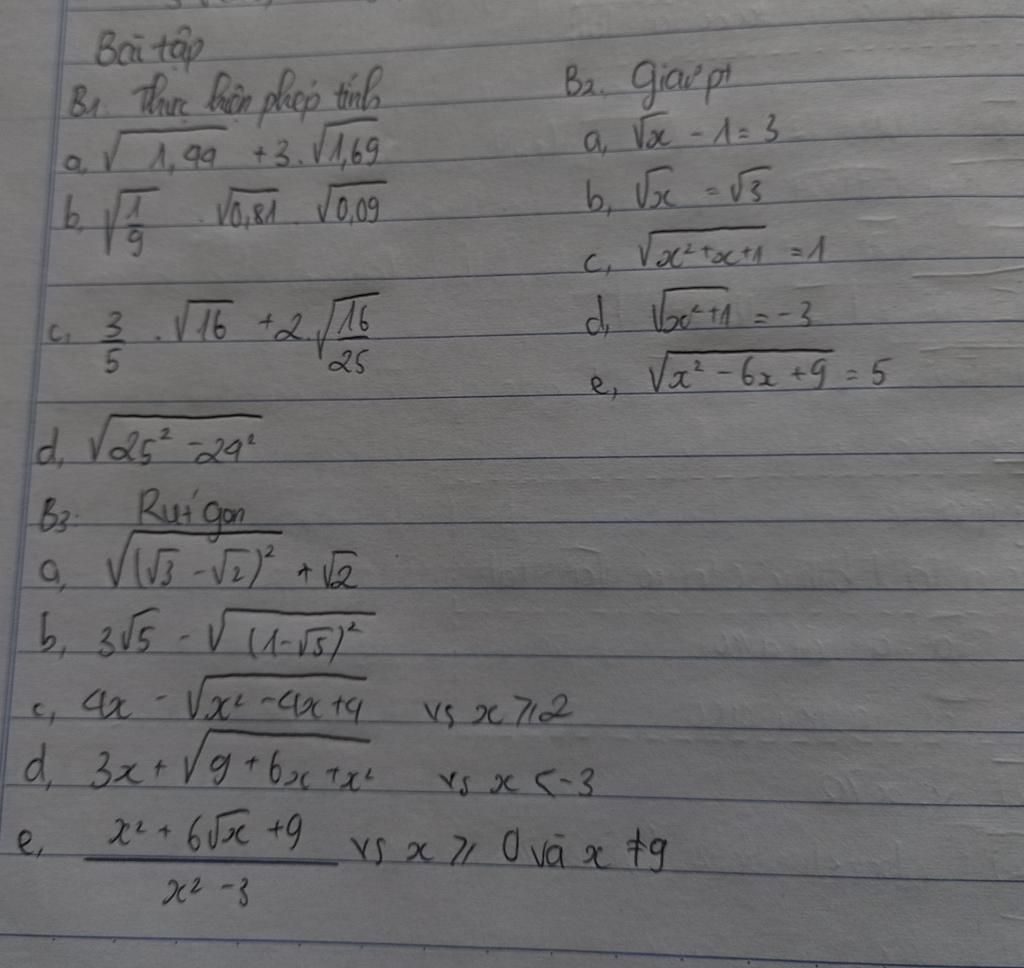 Bài tập
B1. Thực hiện phép tính
a, √1,44 + 3.√1,69
b, √(1/9) . √0,81 . √0,09
c, 3/5 . √16 + 2.√(16/25)
d, √(25² - 24²)
B2. Giải pt
a, √x - 1 = 3
b, √x = √3
c, √(x² + x + 1) = 1
d, √(x² + 1) = -3
e, √(x² - 6x + 9) = 5
B3: Rút gọn
a, √((√3 - √2)²) + √2
b, 3√5 - √((1 - √5)²)
c, 4x - √(x² - 4x + 4) vs x ≥ 2
d, 3x + √(9 + 6x + x²) vs x < -3
e, (x² + 6√x + 9)/(x² - 3) vs x ≥ 0 và x ≠ 9